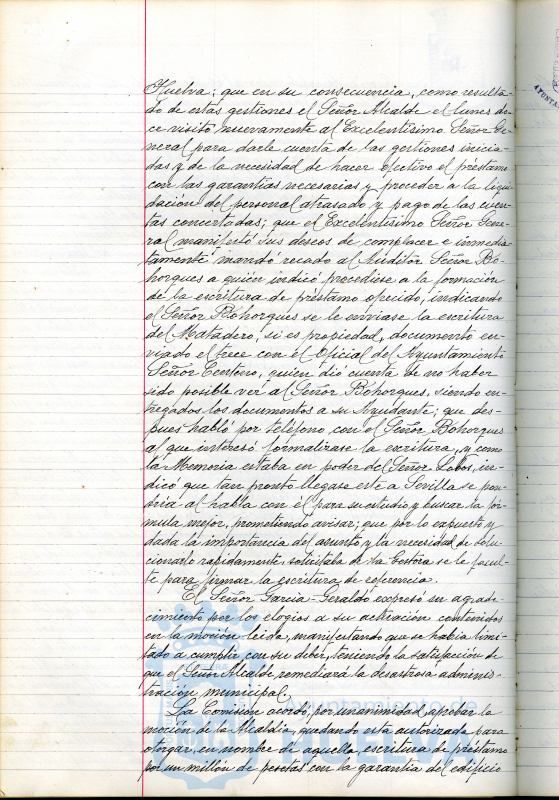 Huelva; que en su consecuencia, como resulta-
do de estas gestiones el Señor Alcalde el lunes do-
ce visitó nuevamente al Excelentísimo Señor Ge-
neral para darle cuenta de las gestiones inicia-
das y de la necesidad de hacer efectivo el préstamo
con las garantías necesarias y proceder a la liqui-
dación del personal atrasado y pago de las cuen-
tas concertadas; que el Excelentísimo Señor Gene-
ral manifestó sus deseos de complacer e inmedia-
tamente mandó recado al Auditor Señor Bo-
horques a quién indicó procediese a la formación
de la escritura de préstamo ofrecido, indicando
el Señor Bohorques se le enviase la escritura
del Matadero, si es propiedad, documento en-
viado el trece con el Oficial del Ayuntamiento
Señor Centeno, quien dió cuenta de no haber
sido posible ver al Señor Bohorques, siendo en-
tregados los documentos a su Ayudante; que des-
pues habló por teléfono con el Señor Bohorques
al que interesó formalizase la escritura, y como
la Memoria estaba en poder del Señor Lobos, in-
dicó que tan pronto llegase este a Sevilla se pon-
dría al habla con él para su estudio y buscar la fór-
mula mejor, prometiendo avisar; que por lo expuesto y
dada la importancia del asunto y la necesidad de solu-
cionarlo rapidamente, solicitaba de la Gestora se le facul-
te para firmar la escritura de referencia.
El Señor García-Geraldó expresó su agrade-
cimiento por los elogios a su actuación contenidos
en la moción leida, manifestando que se había limi-
tado a cumplir con su deber, teniendo la satisfacción de
que el Señor Alcalde, remediara la desastrosa adminis-
tración municipal.
La Comisión acordó, por unanimidad, aprobar la
moción de la Alcaldía, quedando esta autorizada para
otorgar, en nombre de aquella, escritura de préstamo
por un millón de pesetas con la garantía del edificio